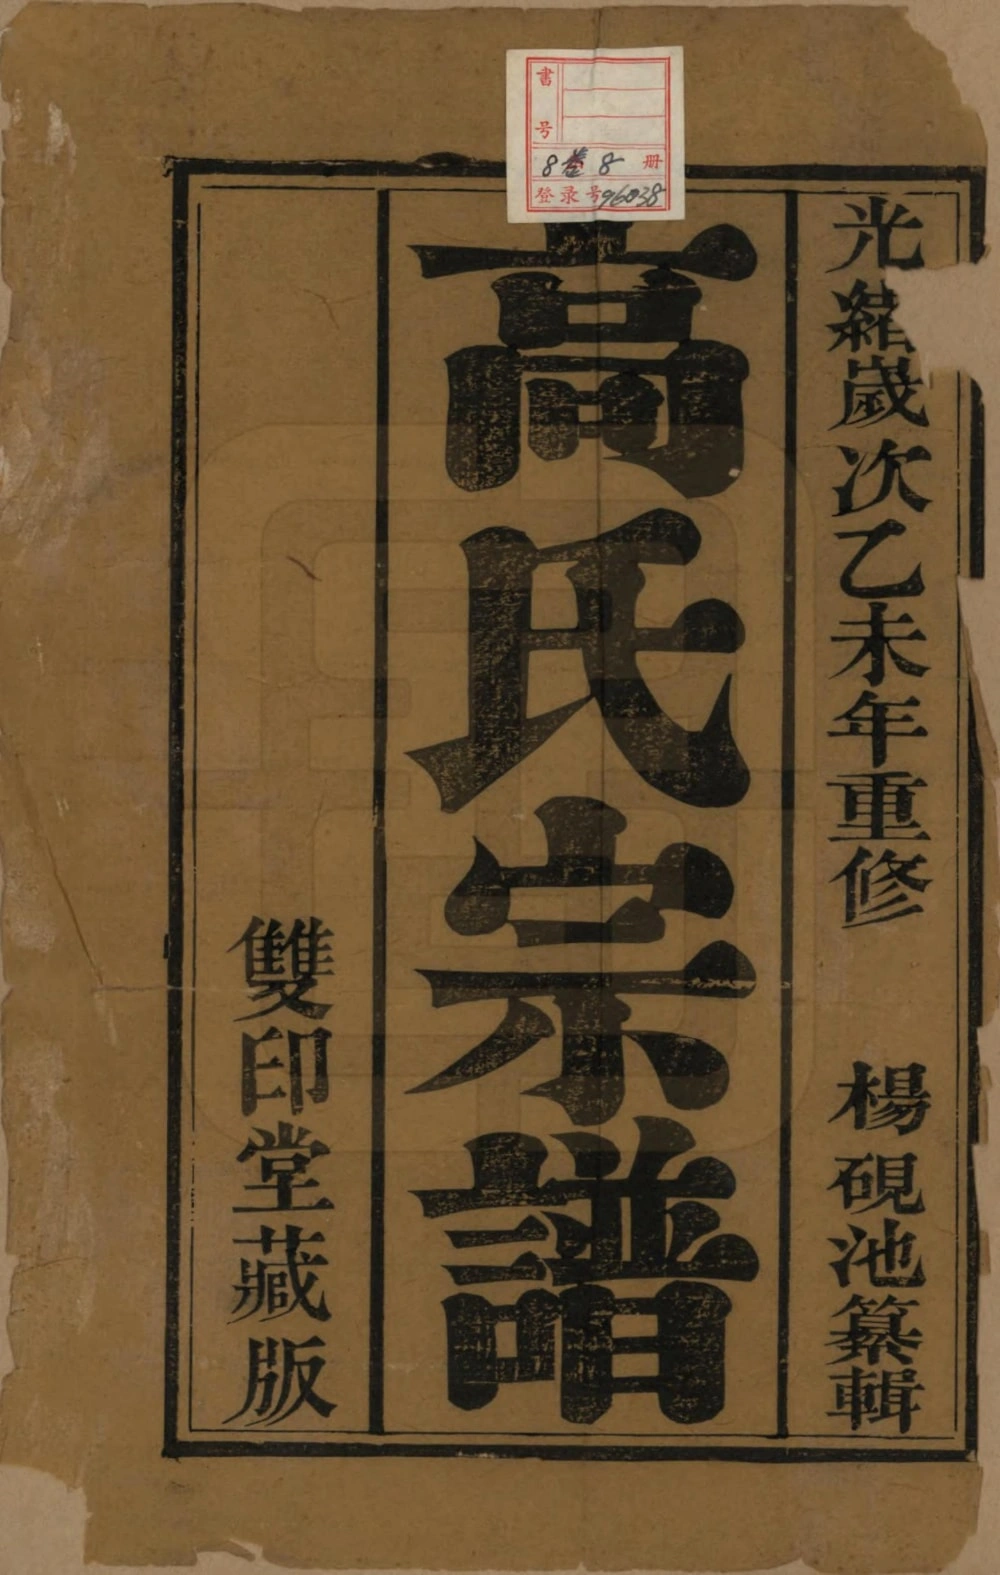 光緒歲次乙未年重修 楊硯池纂輯
高氏宗譜
雙印堂藏版
書号
8卷8册
登录号96038